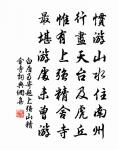 慣游山水住南州
行盡天台及虎丘
惟有上強精舍寺
最堪游處未曾游
白居易寄題上強山精
舍寺詞典網集